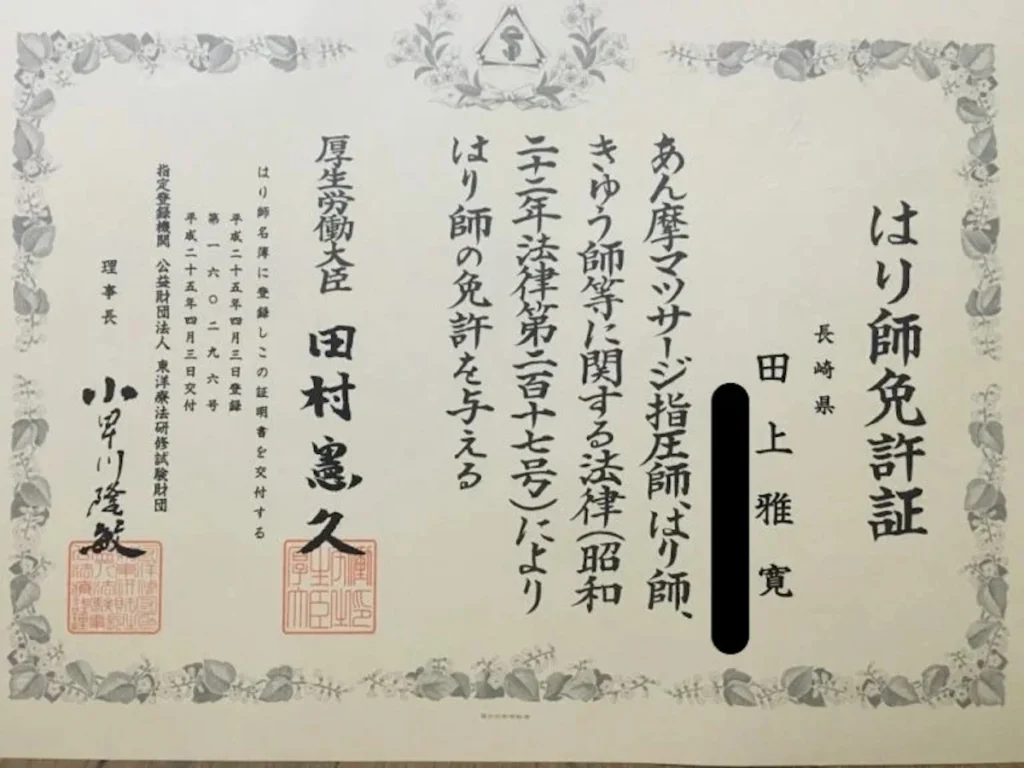 はり師免許証
長崎県
田上雅寛
あん摩マツサージ指圧師、はり師、
きゆう師等に関する法律(昭和
二十二年法律第二百十七号)により
はり師の免許を与える
厚生労働大臣 田村憲久
はり師名簿に登録しこの証明書を交付する
平成二十五年四月三日登録
第一六〇二九六号
平成二十五年四月三日交付
指定登録機関 公益財団法人 東洋療法研修試験財団
理事長 小早川隆敏